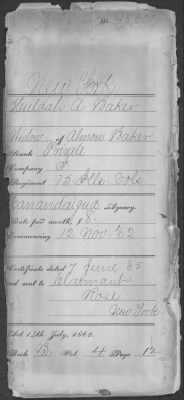 New York
A. Baker
Widow of Almon Baker
Rank Private
Company
Regiment 75 Ills. Vols
Canandaigua Agency.
Rate per month, $8.
Commencing 12 Nov. '62
Certificate dated 7 June '65
and sent to Claimant
Rose
New York
Act 14th July, 1862.
Book B. Vol. 4 Page 12